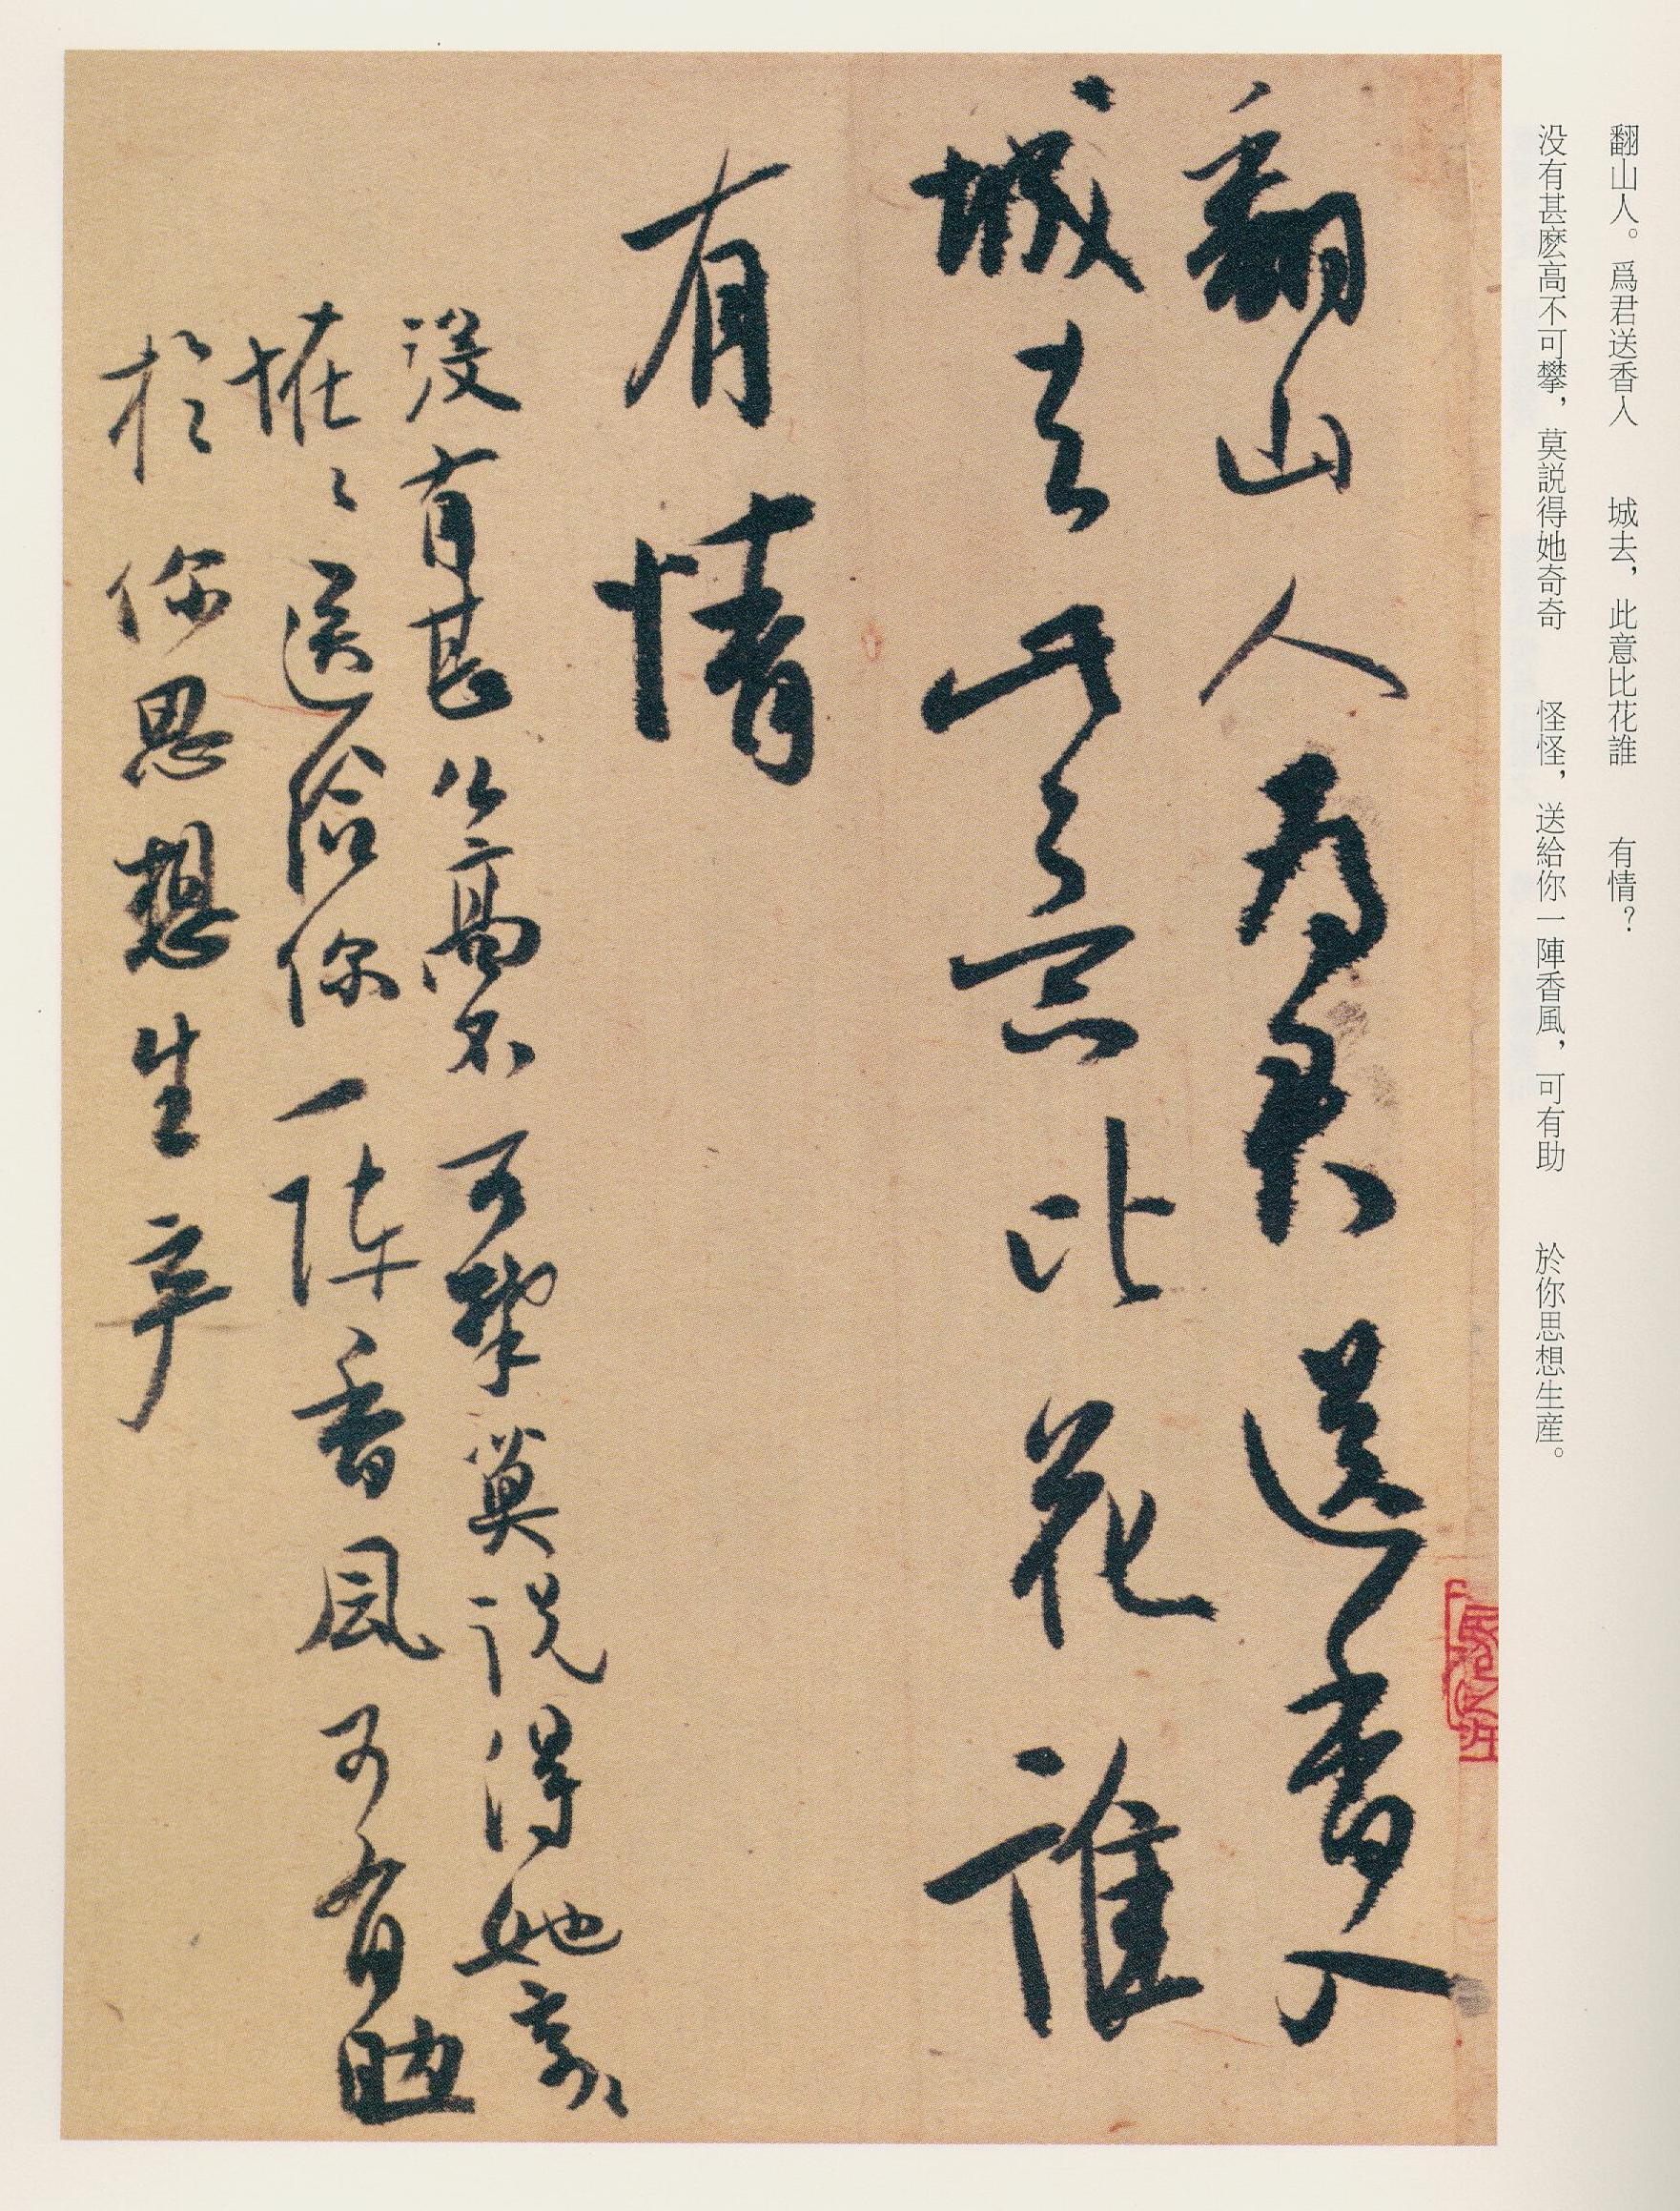 翻山人。爲君送香入　城去，此意比花誰　有情？
没有甚麽高不可攀，莫説得她奇奇　怪怪，送給你一陣香風，可有助　於你思想生産。
翻山人为君送香入
城去此意比花誰
有情
没有甚么高不可攀莫说得她奇〻
怪〻送给你一阵香风可有助
於你思想生产